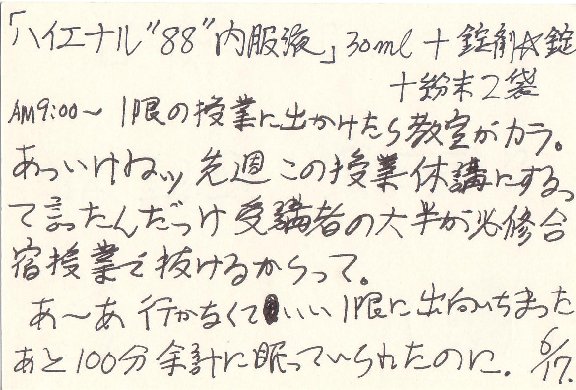 「ハイエナル"88"内服液」30ml＋錠剤☆錠
＋粉末2袋
AM9:00〜 1限の授業に出かけたら教室がカラ。
あっいけねッ 先週この授業休講にするっ
て言ったんだっけ 受講者の大半が必修合
宿授業で抜けるからって。
あ〜あ 行かなくていい1限に出向いちまった
あと100分余計に眠っていられたのに.
6/17.